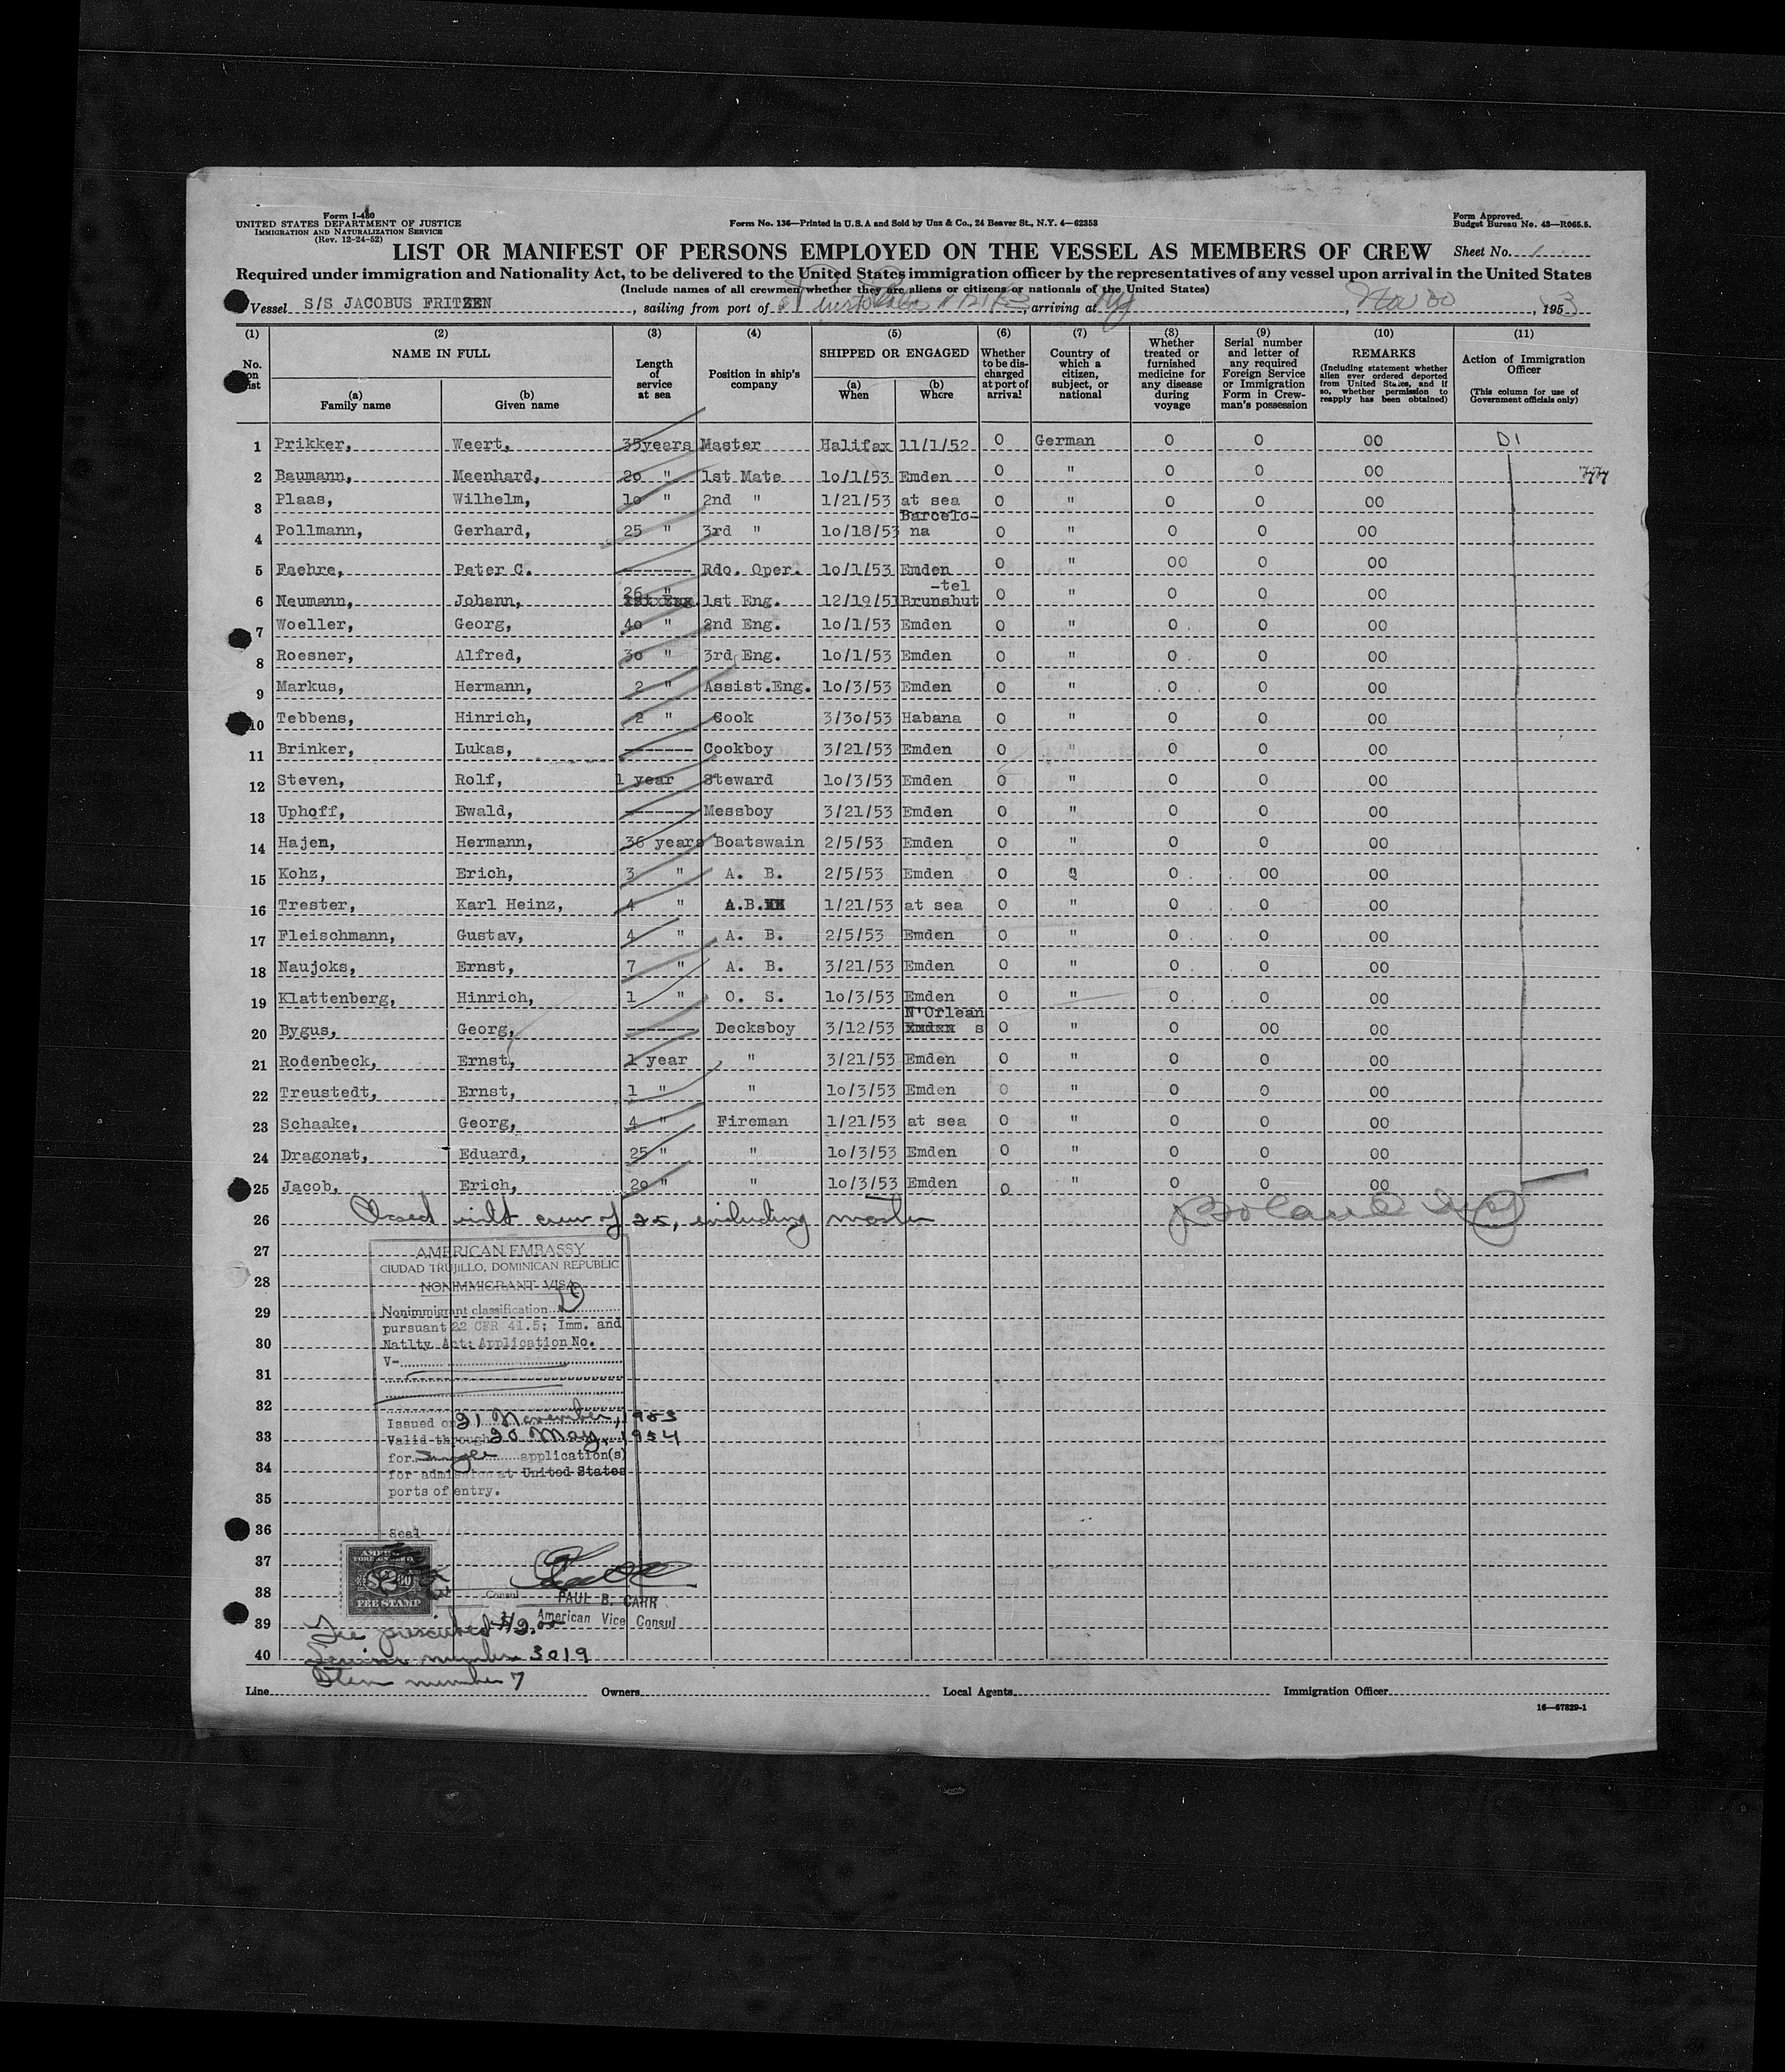 Form I-480
UNITED STATES DEPARTMENT OF JUSTICE
IMMIGRATION AND NATURALIZATION SERVICE
(Rev. 12-24-52)
Form No. 136—Printed in U.S.A and Sold by Unz & Co., 24 Beaver St., N.Y. 4—62353
Form Approved.
Budget Bureau No. 43—R065.5.
LIST OR MANIFEST OF PERSONS EMPLOYED ON THE VESSEL AS MEMBERS OF CREW
Sheet No. 1
Required under immigration and Nationality Act, to be delivered to the United States immigration officer by the representatives of any vessel upon arrival in the United States
(Include names of all crewmen whether they are aliens or citizens or nationals of the United States)
Vessel S/S JACOBUS FRITZEN, sailing from port of Puerto Plata, arriving at NY, Nov 30, 1953
(1) No. on list
(2) NAME IN FULL (a) Family name (b) Given name
(3) Length of service at sea
(4) Position in ship's company
(5) SHIPPED OR ENGAGED (a) When (b) Where
(6) Whether to be discharged at port of arrival
(7) Country of which a citizen, subject, or national
(8) Whether treated or furnished medicine for any disease during voyage
(9) Serial number and letter of any required Foreign Service or Immigration Form in Crewman's possession
(10) REMARKS (Including statement whether alien ever ordered deported from United States, and if so, whether permission to reapply has been obtained)
(11) Action of Immigration Officer (This column for use of Government officials only)
1 Prikker, Weert, 35years Master Halifax 11/1/52 0 German 0 0 00 D1
2 Baumann, Meenhard, 2o " 1st Mate 1o/1/53 Emden 0 " 0 0 00
3 Plaas, Wilhelm, 1o " 2nd " 1/21/53 at sea 0 " 0 0 00
4 Pollmann, Gerhard, 25 " 3rd " 1o/18/53 Barcelo-na 0 " 0 0 00
5 Faehre, Peter C. ------- Rdo. Oper. 1o/1/53 Emden 0 " 00 0 00
6 Neumann, Johann, 26 " 1st Eng. 12/19/51 Brunsbut-tel 0 " 0 0 00
7 Woeller, Georg, 4o " 2nd Eng. 1o/1/53 Emden 0 " 0 0 00
8 Roesner, Alfred, 3o " 3rd Eng. 1o/1/53 Emden 0 " 0 0 00
9 Markus, Hermann, 2 " Assist.Eng. 1o/3/53 Emden 0 " 0 0 00
10 Tebbens, Hinrich, 2 " Cook 3/3o/53 Habana 0 " 0 0 00
11 Brinker, Lukas, ------- Cookboy 3/21/53 Emden 0 " 0 0 00
12 Steven, Rolf, 1 year Steward 1o/3/53 Emden 0 " 0 0 00
13 Uphoff, Ewald, ------- Messboy 3/21/53 Emden 0 " 0 0 00
14 Hajen, Hermann, 36 years Boatswain 2/5/53 Emden 0 " 0 0 00
15 Kohz, Erich, 3 " A. B. 2/5/53 Emden 0 " 0 00 00
16 Trester, Karl Heinz, 4 " A.B. 1/21/53 at sea 0 " 0 0 00
17 Fleischmann, Gustav, 4 " A. B. 2/5/53 Emden 0 " 0 0 00
18 Naujoks, Ernst, 7 " A. B. 3/21/53 Emden 0 " 0 0 00
19 Klattenberg, Hinrich, 1 " O. S. 1o/3/53 Emden 0 " 0 0 00
20 Bygus, Georg, ------- Decksboy 3/12/53 N'Orleans 0 " 0 00 00
21 Rodenbeck, Ernst, 1 year " 3/21/53 Emden 0 " 0 0 00
22 Treustedt, Ernst, 1 " " 1o/3/53 Emden 0 " 0 0 00
23 Schaake, Georg, 4 " Fireman 1/21/53 at sea 0 " 0 0 00
24 Dragonat, Eduard, 25 " " 1o/3/53 Emden 0 " 0 0 00
25 Jacob, Erich, 2o " " 1o/3/53 Emden 0 " 0 0 00
26 Closed with crew of 25, including master
27
28
29
30
31
32
33
34
35
36
37
38
39
40
AMERICAN EMBASSY
CIUDAD TRUJILLO, DOMINICAN REPUBLIC
NONIMMIGRANT VISA
Nonimmigrant classification D
pursuant 22 CFR 41.5; Imm. and
Natlty. Act: Application No.
V-
Issued on 21 November, 1953
Valid through 20 May, 1954
for single application(s)
for admission at United States
ports of entry.
Seal
FEE STAMP
Consul
PAUL B. CARR
American Vice Consul
Fee prescribed $2.00
Service number 3019
Item number 7
Line Owners Local Agents Immigration Officer
16—67829-1